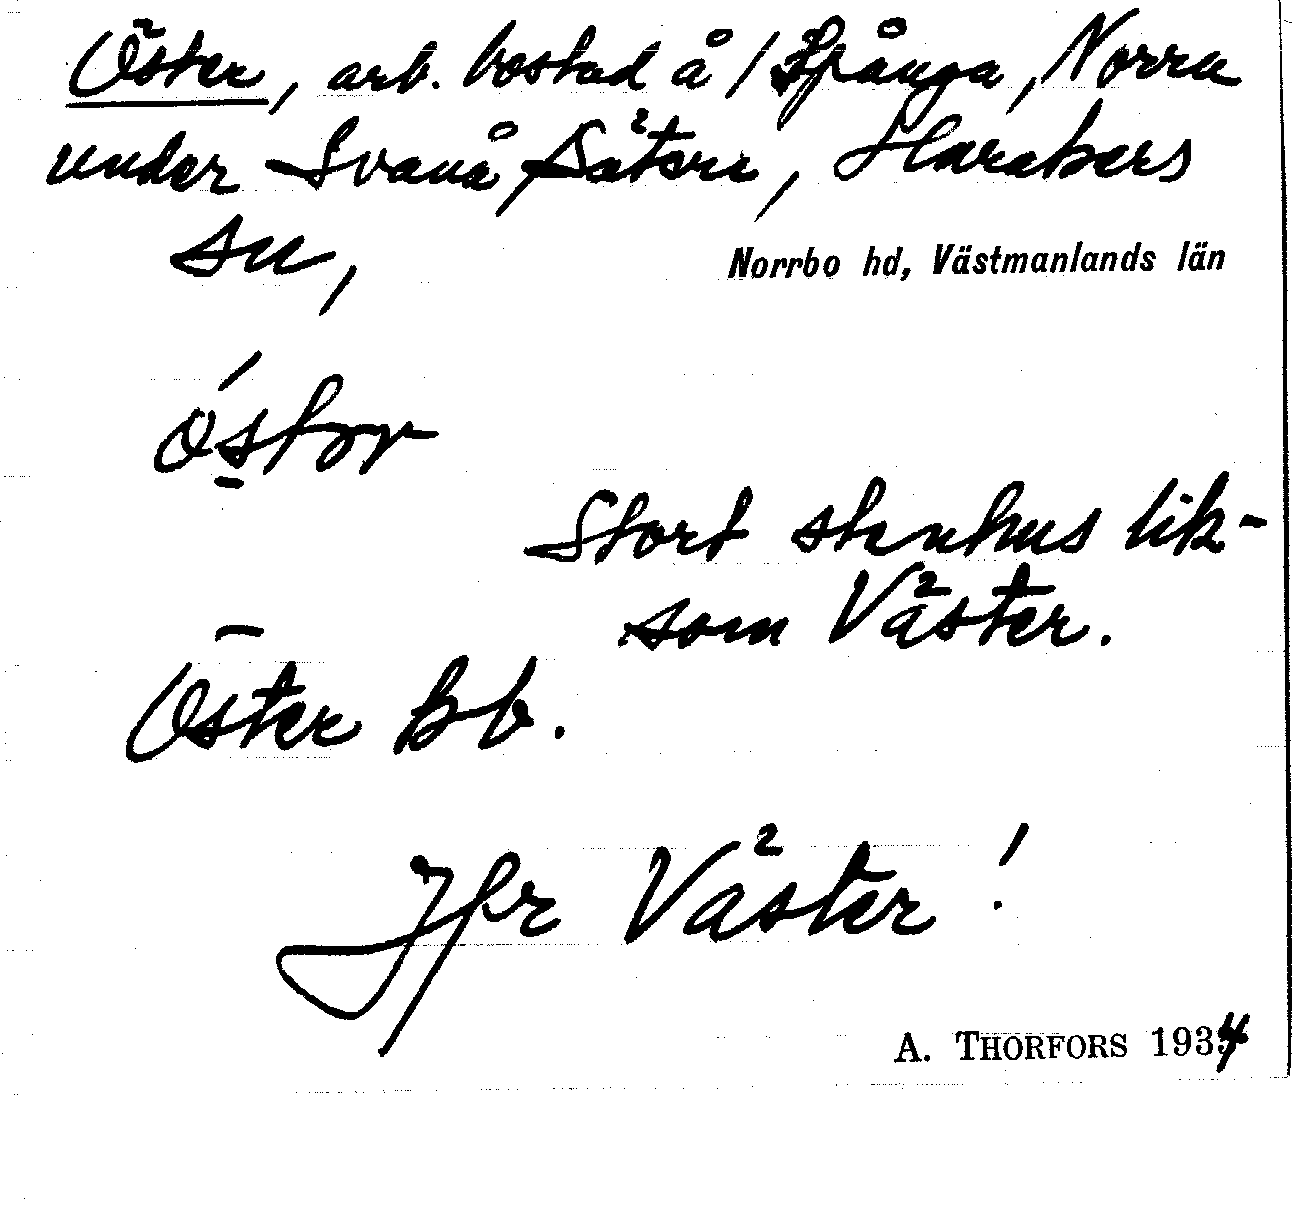 Öster, arb. bostad å / Spånga, Norra
under Svanå Säteri, Harakers
sn,
Norrbo hd, Västmanlands län
östər
Stort stenhus lik-
som Väster.
Öster Bb.
Jfr Väster!
A. THORFORS 1934